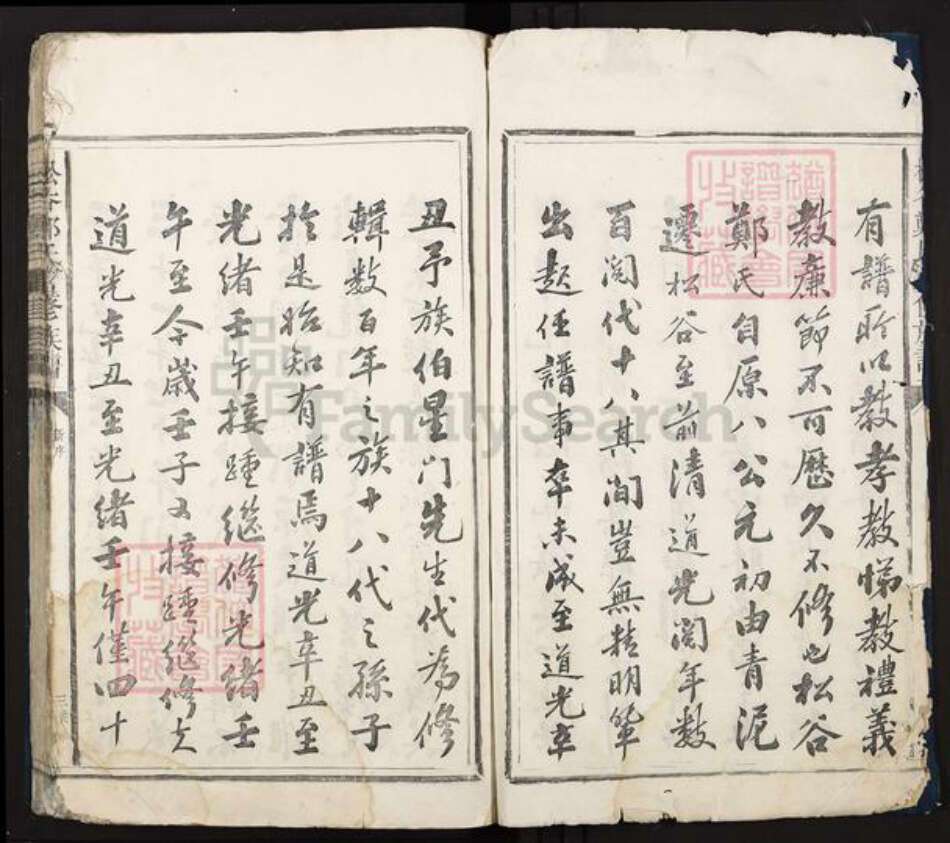 有譜所以教孝教悌教禮義
教廉節不可歷久不修也松谷
鄭氏自原八公元初由青泥
遷松谷至前清道光閱年數
百閱代十八其間豈無精明輩
出題任譜事卒未成至道光辛
丑予族伯星門先生代為修
輯數百年之族十八代之孫子
於是始知有譜焉道光辛丑至
光緒壬午接踵繼修光緒壬
午至今歲壬子又接踵繼修夫
道光辛丑至光緒壬午僅四十
新序
FamilySearch